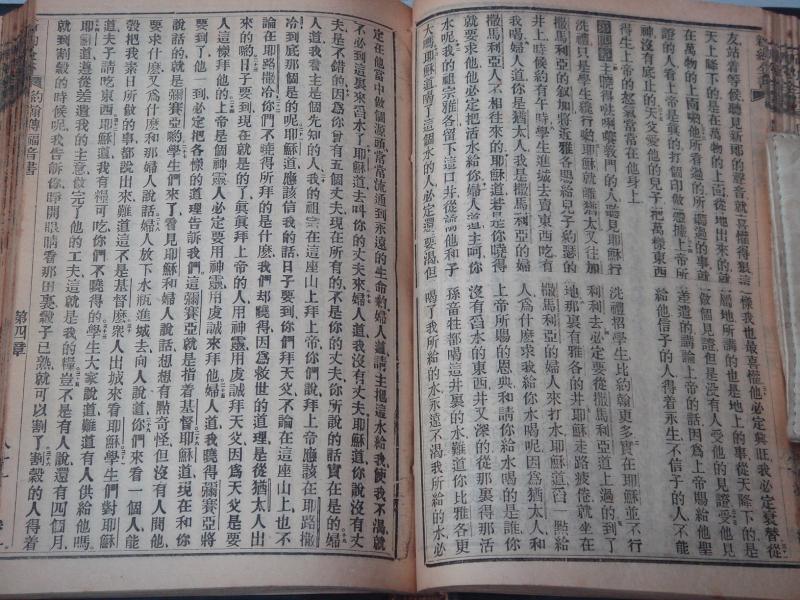 友站着等候聽見新郎的聲音就喜懽得狠這樣我也最喜懽他必定興旺我必定衰替從
天上降下的是在萬物的上面從地出來的就屬地所講的也是地上的事從天降下的是
在萬物的上面啲他所看過的所聽過的事就做個見證但是没有人受他的見證受他見
證的人看上帝是真的打個印做憑據上帝所差遣的講論上帝的話因爲上帝賜給他聖
神没有底止的天父愛他的兒子把萬樣東西給他信子的人得着永生不信子的人不能
得生上帝的怒氣常常在他身上
主曉得教門的人聽見耶穌行洗禮招學生比約翰更多實在耶穌並不行
洗禮只是學生總行啲耶穌就離猶太又往加利利去必定要從撒馬利亞道上過的到了
撒馬利亞的叙加將近雅各賜給兒子約瑟的地那裏有雅各的井耶穌走路疲倦就坐在
井上時候約有午時學生進城去賣東西吃有撒馬利亞的婦人來打水耶穌道舀一點給
我喝婦人道你是猶太人我是撒馬利亞的婦人爲什麼求我給你水喝呢因爲猶太人和
撒馬利亞人不相往來的耶穌道若是你曉得上帝所賜的恩典和請你給水喝的是誰你
就要求他他必定把活水給你婦人道主呵你沒有舀水的東西井又深的從那裏得那活
水呢我的祖宗雅各留下這口井從前他和子孫牲都喝這井裏的水難道你比雅各更
大嗎耶穌道喝了這個水的人必定還要渴但喝了我所給的水永遠不渴我所給的水必
定在他當中做個源頭常常流通到永遠的生命啲婦人道請主把這水給我使我不渴就
不必到這裏來舀水了耶穌道去叫你的丈夫來婦人道我没有丈夫耶穌道你說没有丈
夫是不錯的因爲你曾有五個丈夫現在所有的不是你的丈夫你所說的話實在是的婦
人道我看主是個先知的人我的祖宗在這座山上拜上帝你們說拜上帝應該在耶路撒
冷到底那個是的呢耶穌道應該信我的話日子要到你們拜天父不論在這座山上也不
論在耶路撒冷你們不曉得所拜的是什麼我們却曉得因爲救世的道理是從猶太人出
來的啲日子要到現在就是的了真真拜上帝的人用神靈用虔誠拜天父因爲天父是要
人這樣拜他的上帝是個神靈必定要用神靈用虔誠來拜他婦人道我曉得彌賽亞將
要到了他一到必定把各樣的道理告訴我們這彌賽亞就是指着基督耶穌道現在和你
說話的就是彌賽亞啲學生們來了看見耶穌和婦人說話想想有點奇怪但沒有人問他
要求什麼又爲什麼和那婦人說話婦人放下水瓶進城去向人說道你們來看一個人能
彀把我素日所做的事都說出來難道這不是基督麽衆人出城來看耶穌學生們對耶穌
道夫子請吃東西耶穌道我有糧可吃你們不曉得的學生大家說道難道有人供給他嗎
耶穌道遵從差遣我的主意做完了他的工夫這就是我的糧豈不是有人說還有四個月
就到割穀的時候呢我告訴你睜開眼睛看那田裏穀子已熟就可以割了割穀的人得着
約翰傳福音書
第四章